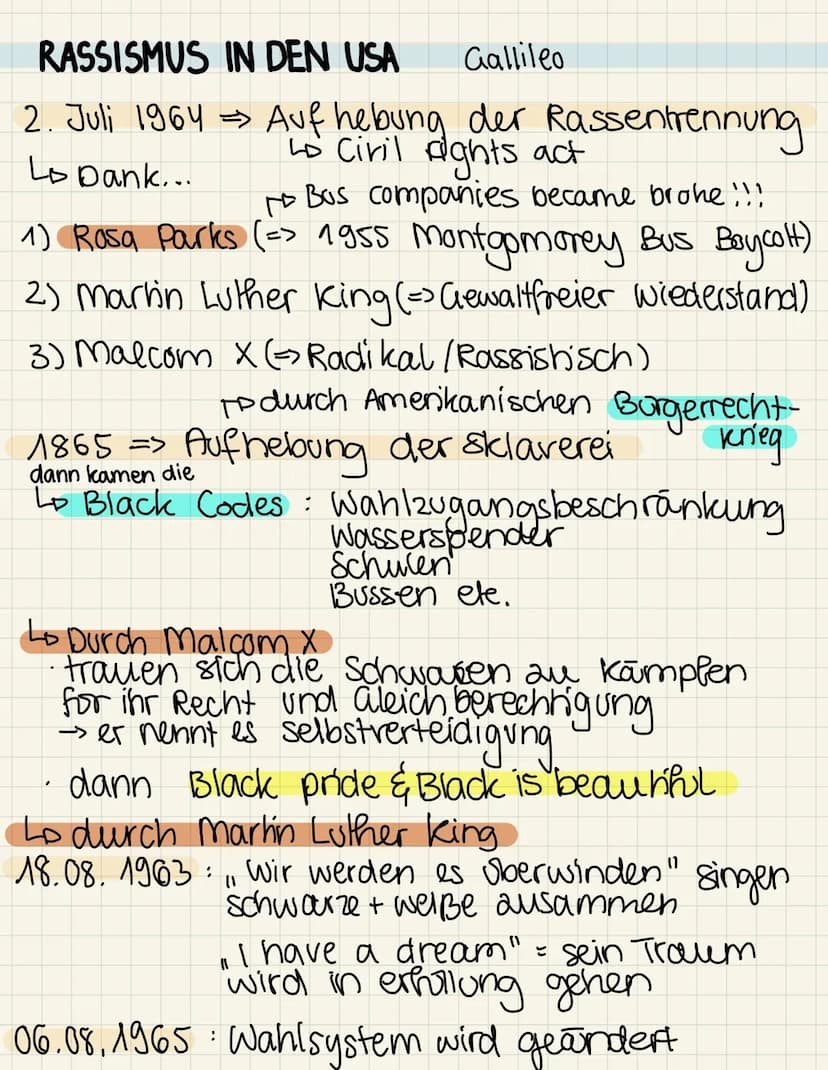 RASSISMUS IN DEN USA Gallileo
2. Juli 1964 ⇒ Aufhebung der Rassentrennung
↳ Civil rights act
↳ Dank...
↱ Bus companies became broke!!!
1) Rosa Parks (=> 1955 Montgomorey Bus Boycott)
2) Martin Luther King (=> Gewaltfreier Wiederstand)
3) Malcom X (=> Radikal / Rassistisch)
↱ durch Amerikanischen Bürgerrecht-
krieg
1865 => Aufhebung der Sklaverei
dann kamen die
↳ Black Codes : Wahlzugangsbeschränkung
Wasserspender
Schulen
Bussen etc.
↳ Durch Malcom X
· trauen sich die Schwarzen zu kämpfen
für ihr Recht und Gleichberechtigung
→ er nennt es selbstverteidigung
· dann Black pride & Black is beautiful
↳ durch Martin Luther King
18.08. 1963 : „Wir werden es überwinden" singen
schwarze + weiße zusammen
„I have a dream" = sein Traum
wird in erfüllung gehen
06.08,1965 : Wahlsystem wird geändert